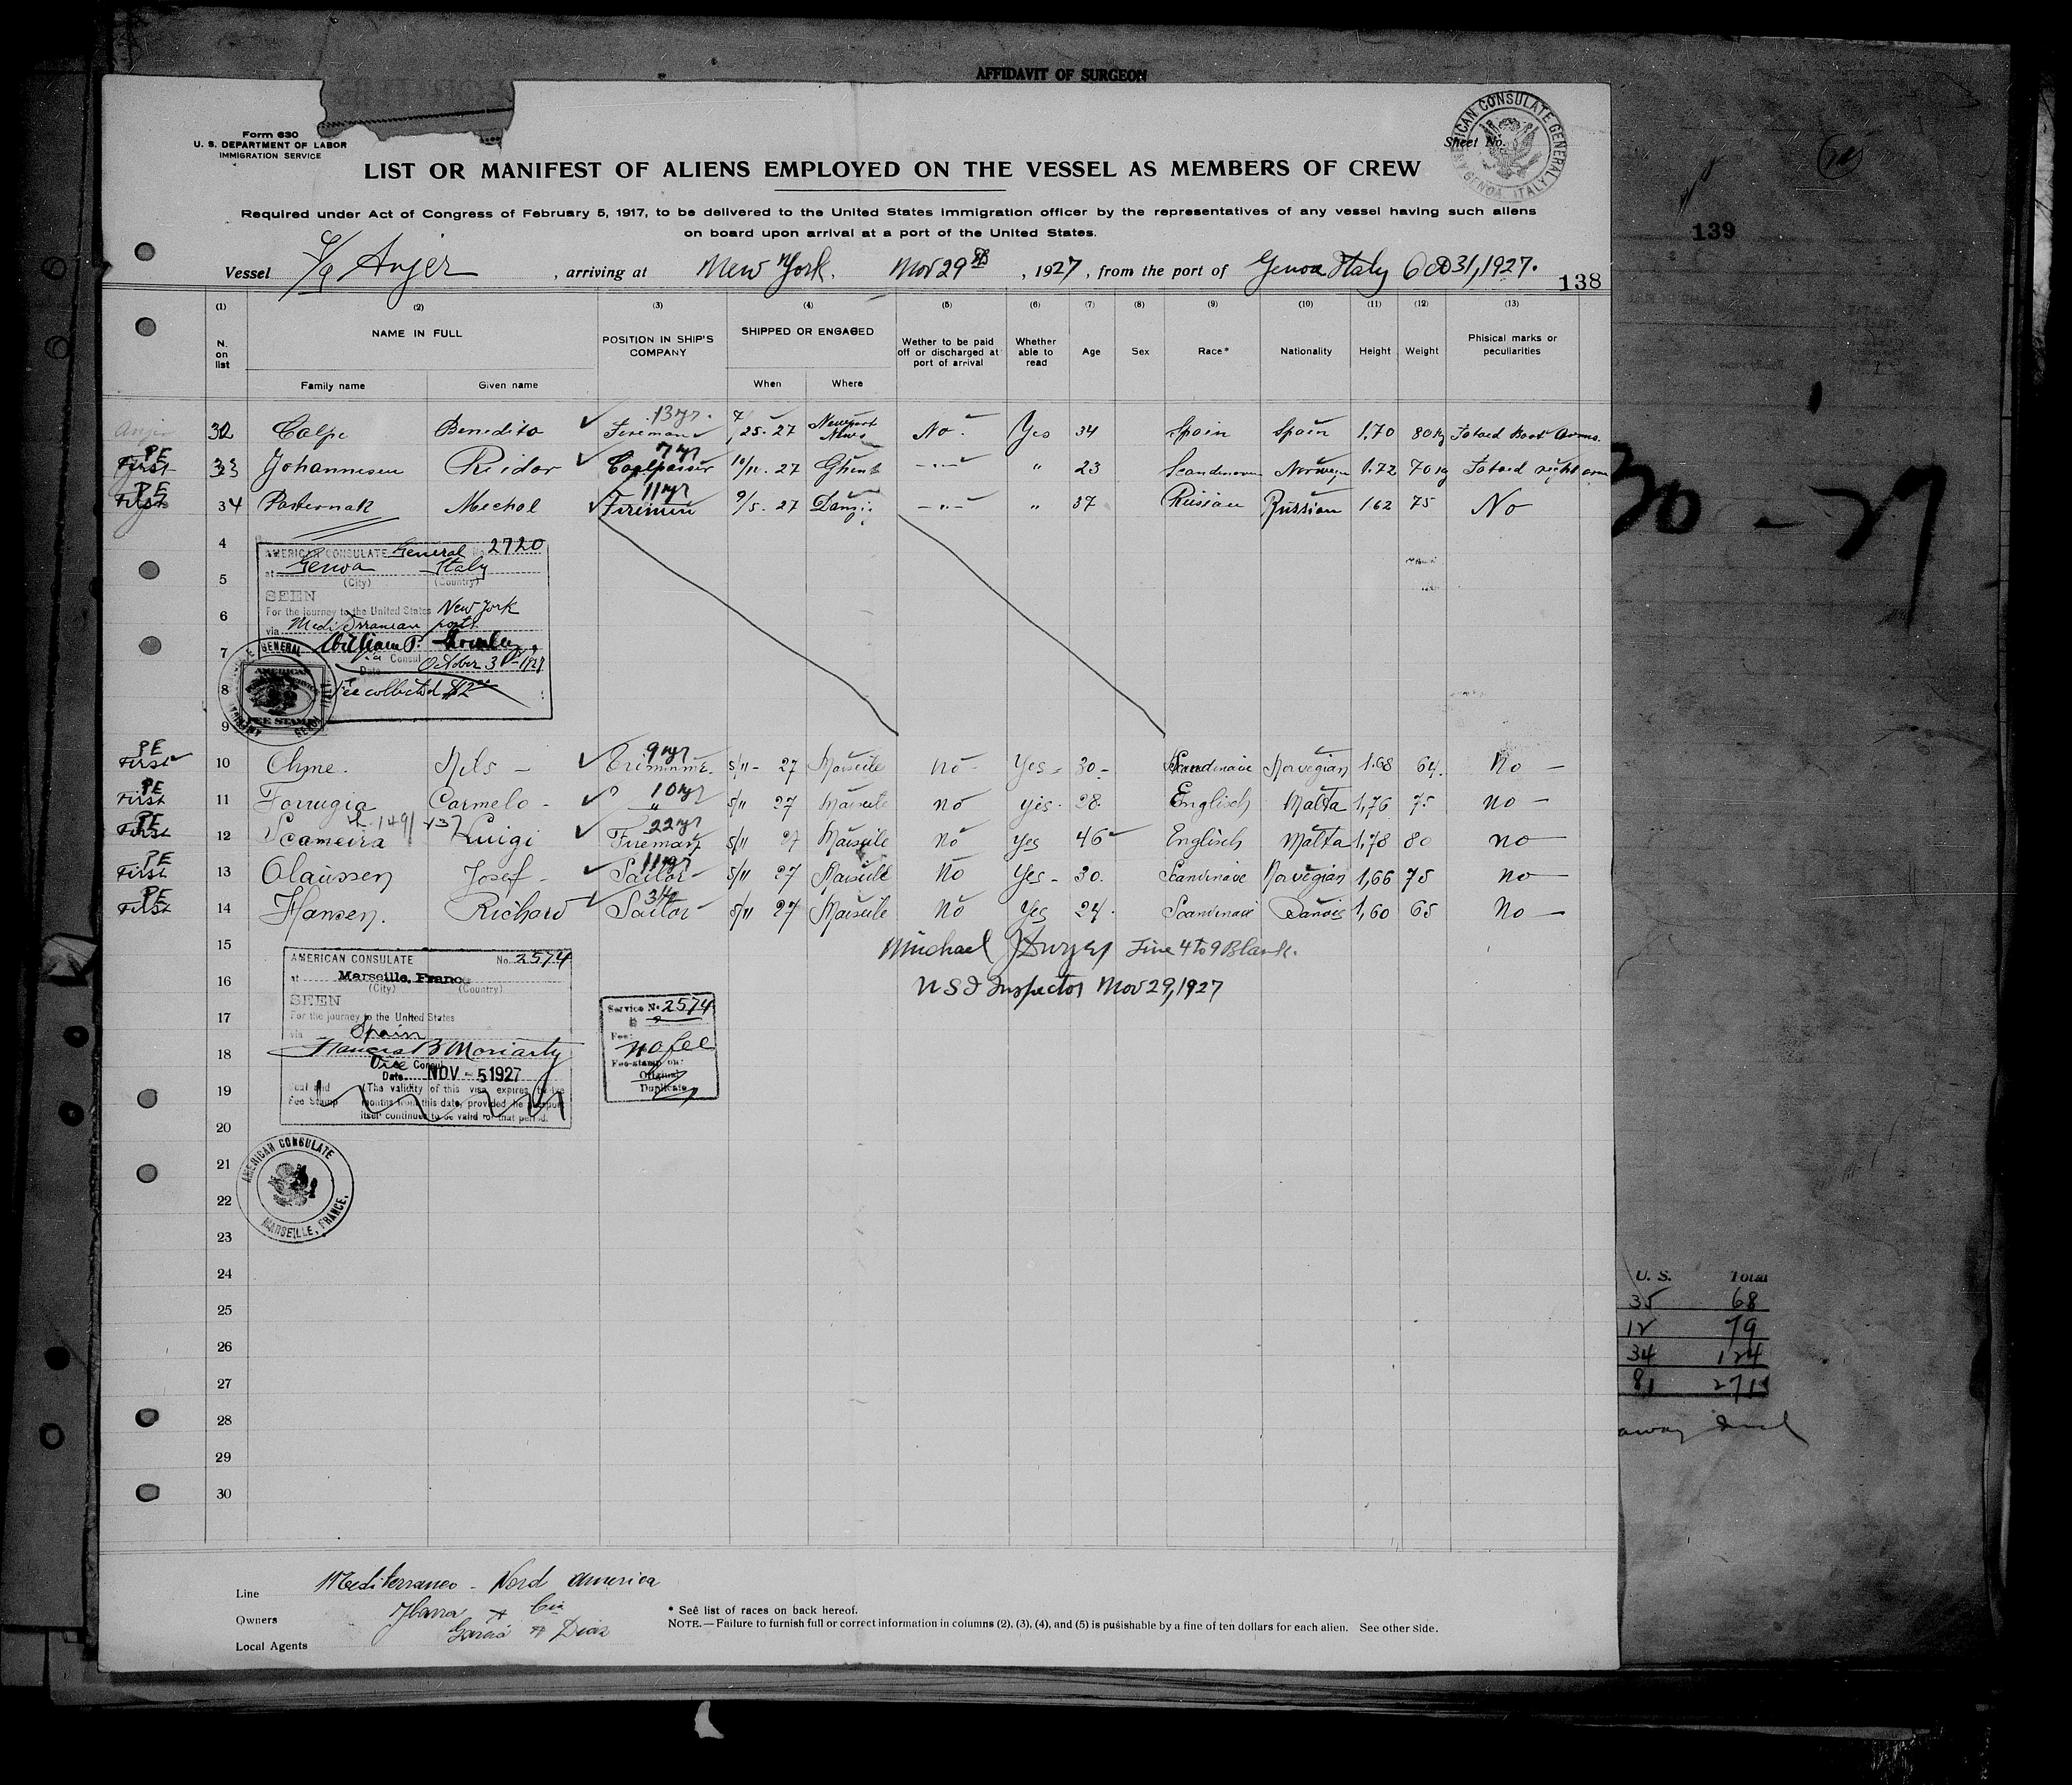 AFFIDAVIT OF SURGEON
Form 630
U. S. DEPARTMENT OF LABOR
IMMIGRATION SERVICE
Sheet No.
AMERICAN CONSULATE GENERAL GENOA, ITALY
LIST OR MANIFEST OF ALIENS EMPLOYED ON THE VESSEL AS MEMBERS OF CREW
Required under Act of Congress of February 5, 1917, to be delivered to the United States immigration officer by the representatives of any vessel having such aliens
on board upon arrival at a port of the United States.
139
Vessel Anjer, arriving at New York. Nov 29th, 1927, from the port of Genoa Italy Oct 31, 1927.
138
(1) (2) (3) (4) (5) (6) (7) (8) (9) (10) (11) (12) (13)
N. on list NAME IN FULL POSITION IN SHIP'S COMPANY SHIPPED OR ENGAGED Wether to be paid off or discharged at port of arrival Whether able to read Age Sex Race* Nationality Height Weight Phisical marks or peculiarities
Family name Given name When Where
32 Colpe Benedito 13 yr. Fireman 7/25-27 Newport News No. Yes 34 Spain Spain 1.70 80 kg
PE First 33 Johannesen Reidar 7 yr Coalpasser 10/11. 27 Ghent -"- " 23 Norwegn 1.72 70 kg
PE First 34 Pasternak Mechol 11 yr Firemen 9/5. 27 Danzi. -"- " 37 Russian Russian 1.62 75 No
4
AMERICAN CONSULATE General No. 2720
at Genoa Italy
5
(City) (Country)
SEEN
6
For the journey to the United States New York
via Mediterranean ports
7
William P.
Consul
Date October 31st 1927
8
Fee collected $2.00
9
PE First 10 Ohme. Nils - 9 yr 5/11 - 27 Marseile no - Yes - 30 - Scandinave Norvegian 1.68 64. No -
PE First 11 Farrugia Carmelo - 10 yr " 5/11 27 Marseile no yes. 28. Englisch Malta 1,76 75 no -
PE First 12 Scameira Luigi 22 yr Fireman 5/11 27 Marseile no yes 46 Englisch Malta 1,78 80 no
PE First 13 Olaussen Josef - 11 yr Sailor - 5/11 27 Marseile No Yes - 30. Scandinave Norvegian 1,66 75 no -
PE First 14 Hansen. Richard Sailor - 5/11 27 Marseile No Yes 24. Scandinave Danois 1,60 65 No -
15 Michael Dwyer Line 4 to 9 Blank.
AMERICAN CONSULATE No. 2574
at Marseille, France
16 U S I Inspector Nov 29, 1927
(City) (Country)
SEEN
For the journey to the United States
17
via Spain
Service No. 2574
Francis B Moriarty
18
Fee: no fee
Vice Consul
Date NOV - 5 1927
Fee-stamp on:
Original
Duplicate
19
Seal and Fee Stamp
(The validity of this visa expires twelve
months from this date, provided the passport
itself continues to be valid for that period.
20
21
AMERICAN CONSULATE
22
MARSEILLE, FRANCE.
23
24
25
26
27
28
29
30
U. S. Total
35 68
12 79
34 124
81 271
Line Mediterraneo - Nord America
Owners Ybarra & Cia
Local Agents Garcia & Diaz
* See list of races on back hereof.
NOTE.—Failure to furnish full or correct information in columns (2), (3), (4), and (5) is punishable by a fine of ten dollars for each alien. See other side.